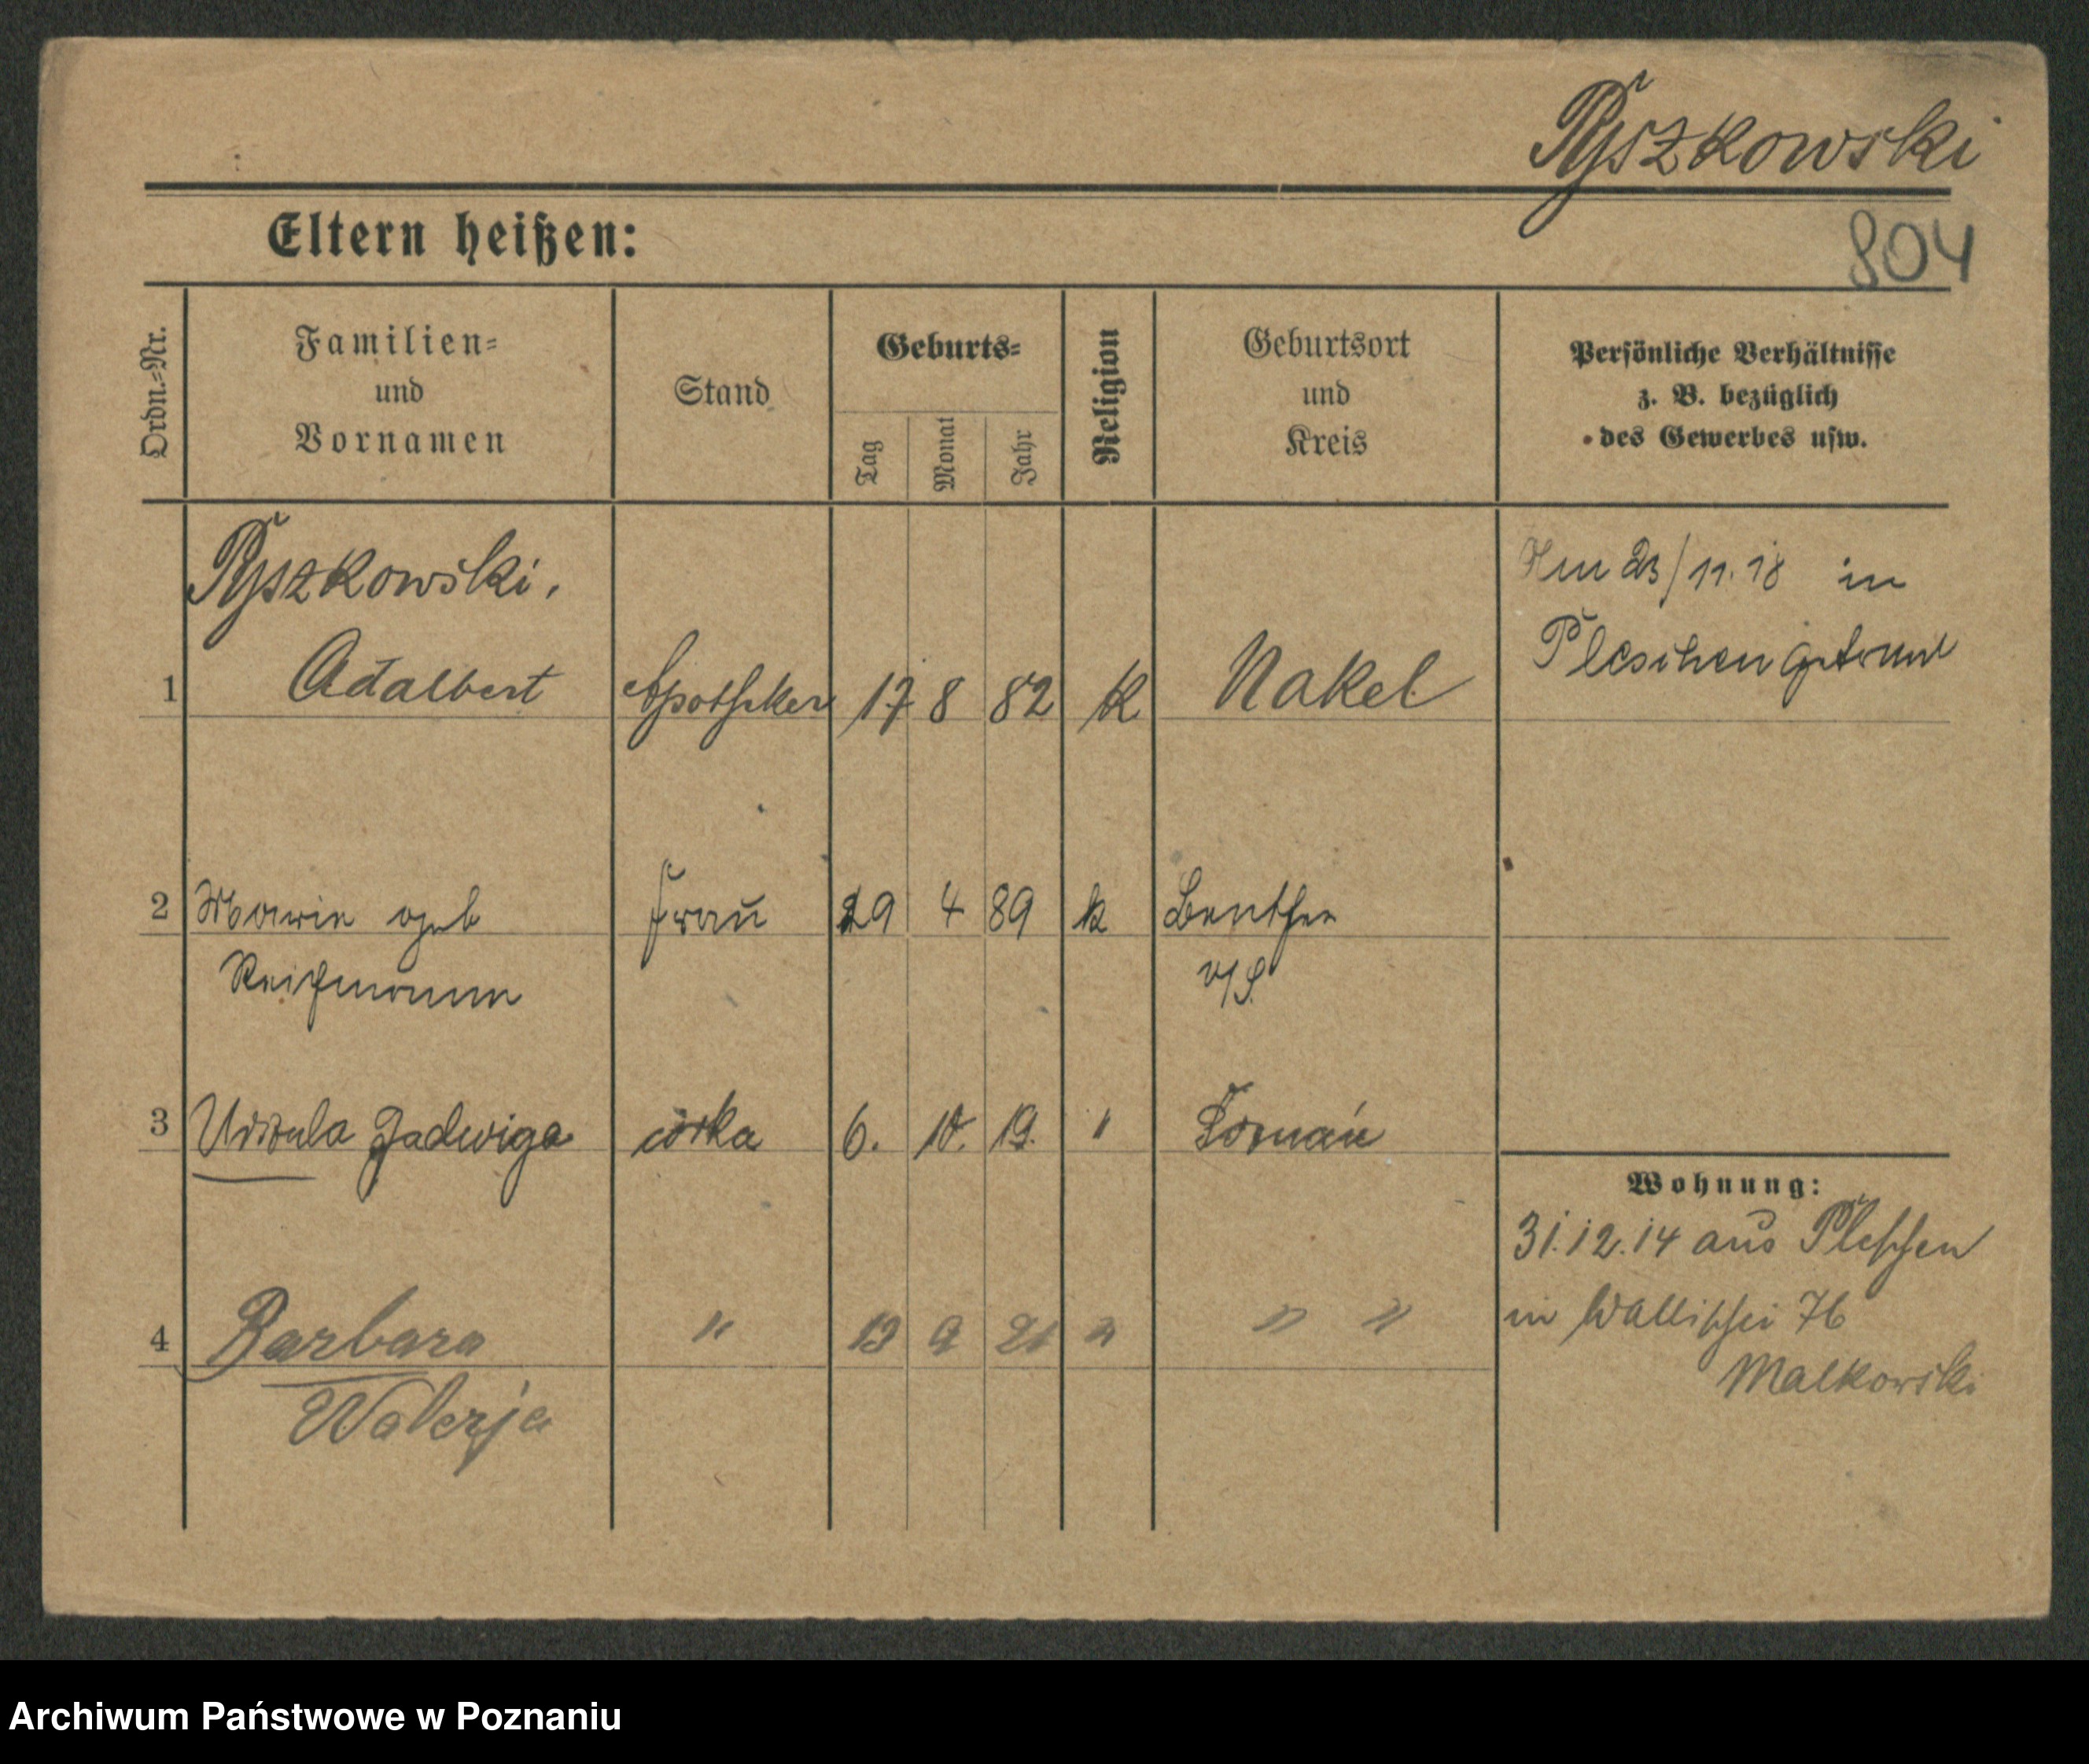 Pyszkowski
Eltern heißen:
804
Ordn.-Nr.
Familien-
und
Vornamen
Stand
Geburts-
Tag
Monat
Jahr
Religion
Geburtsort
und
Kreis
Persönliche Verhältnisse
z. B. bezüglich
des Gewerbes usw.
Pyszkowski,
1 Adalbert Apotheker 17 8 82 k Nakel
Am 23/11.18 in
Pleschen getraut
2 Marie geb Frau 29 4 89 k Beuthen
Reichmann
o/S.
3 Urszula Jadwiga córka 6. 10. 19. " Poznań
Wohnung:
31.12.14 aus Pleschen
in Wallischei 76
Malkowski
4 Barbara " 13 9 21 " " "
Walerja
Archiwum Państwowe w Poznaniu